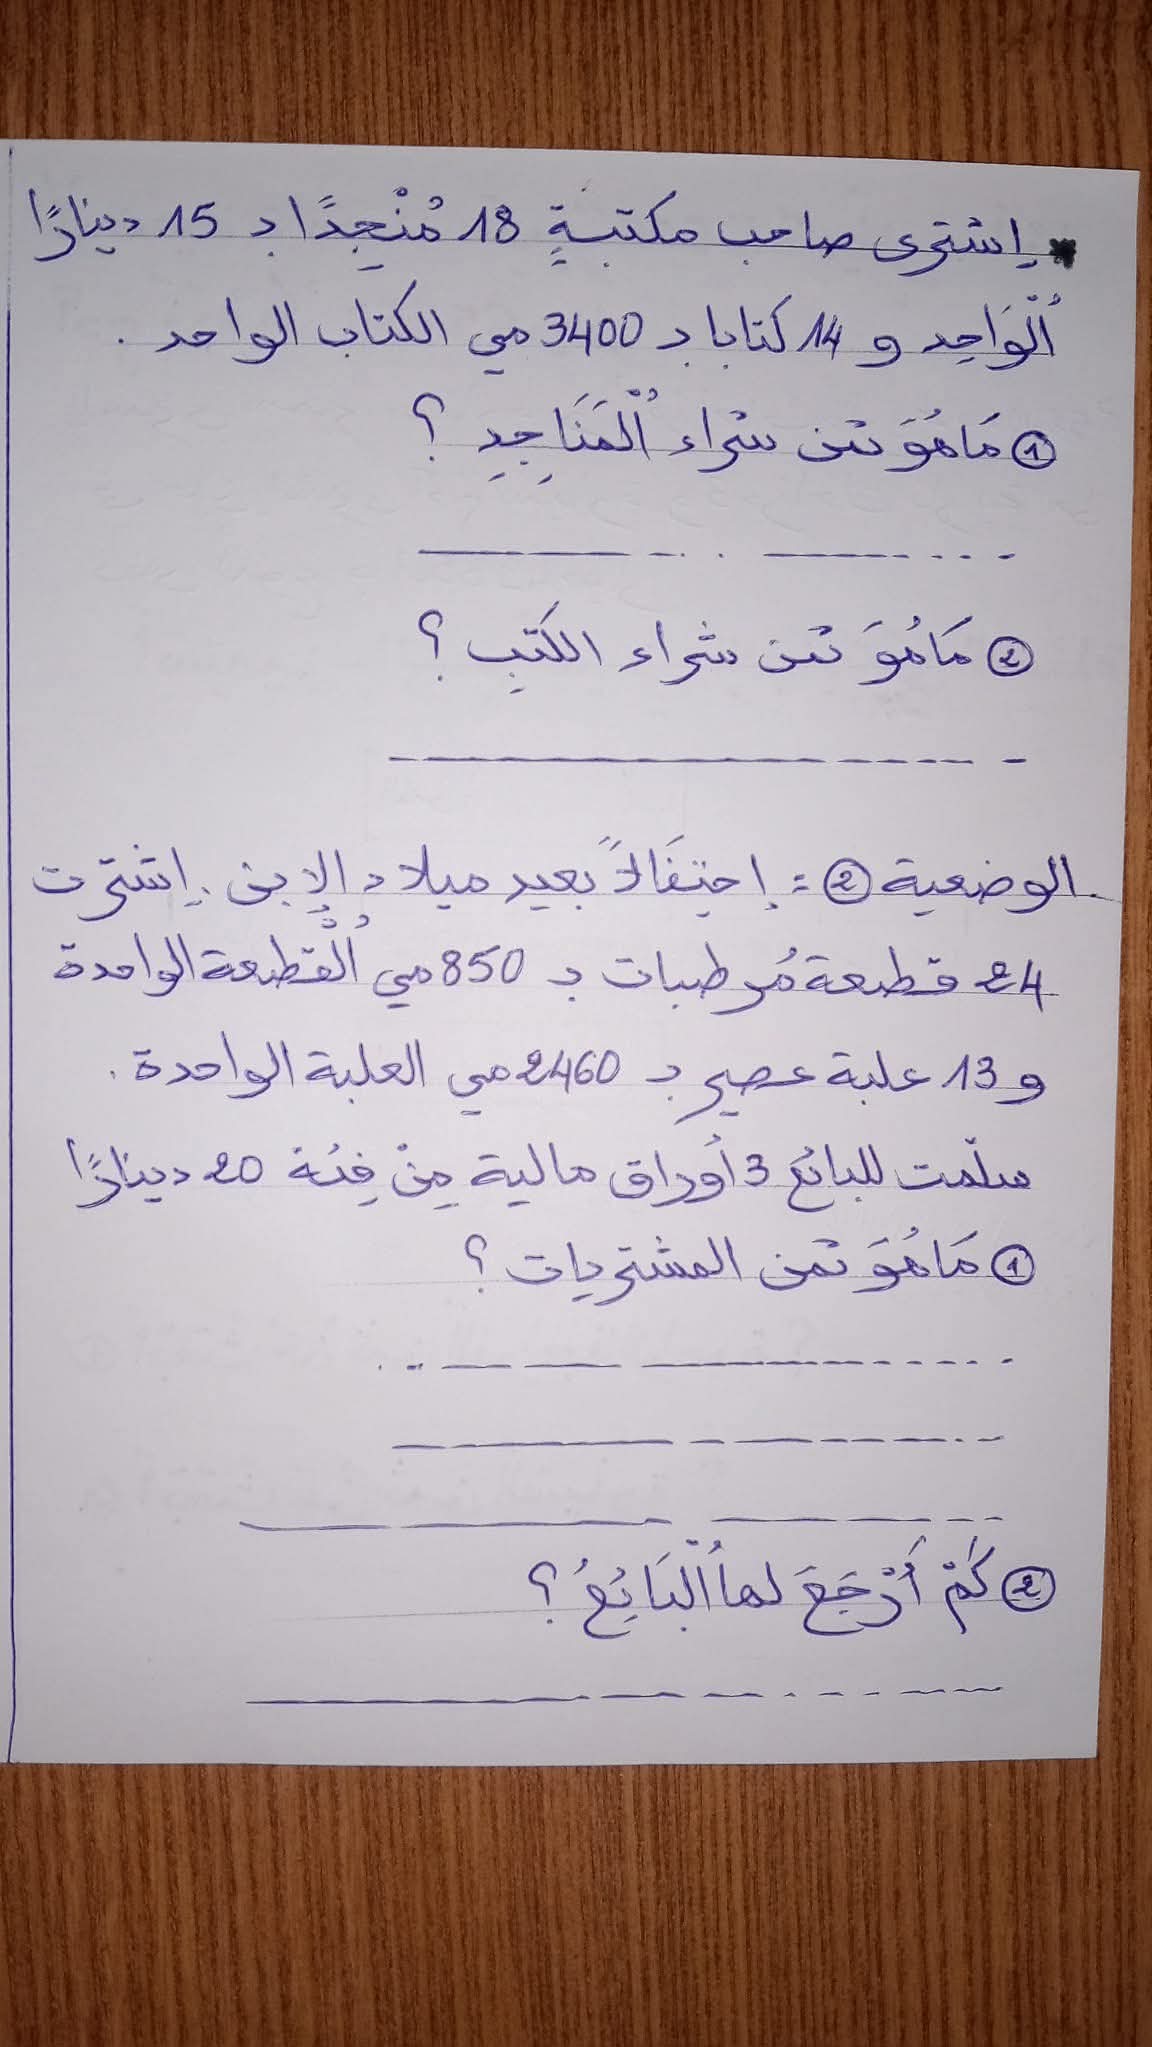 * إشترى صاحب مكتبةٍ 18 مُنْجِدًا بـ 15 دينارًا
اُلْوَاحِد و 14 كتابا بـ 3400 مي الكتاب الواحد .
① مَا هُوَ ثمن شراء اُلْمَنَاجِدِ ؟
② مَا هُوَ ثمن شراء الكتب ؟
الوضعية ② : إحتِفَالاً بعيد ميلاد الإبن . إشترت
24 قطعة مُرطبات بـ 850 مي اُلْقطعة الواحدة
و 13 علبة عصير بـ 2460 مي العلبة الواحدة .
سلّمت للبائع 3 أوراق مالية مِنْ فِئة 20 دينارًا
① مَا هُوَ ثمن المشتريات ؟
② كَمْ أَرْجَعَ لها اُلْبَائِعُ ؟